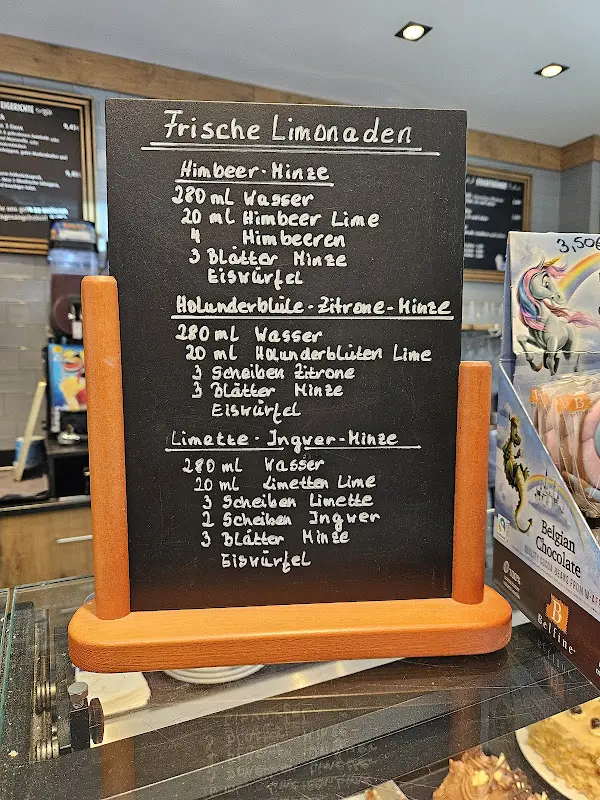 Frische Limonaden
Himbeer-Minze
280 ml Wasser
20 ml Himbeer Lime
4 Himbeeren
3 Blätter Minze
Eiswürfel
Holunderblüte-Zitrone-Minze
280 ml Wasser
20 ml Holunderblüten Lime
3 Scheiben Zitrone
3 Blätter Minze
Eiswürfel
Limette-Ingwer-Minze
280 ml Wasser
20 ml Limetten Lime
3 Scheiben Limette
2 Scheiben Ingwer
3 Blätter Minze
Eiswürfel
3,50€
B
Belgian
Chocolate
B
Belfine